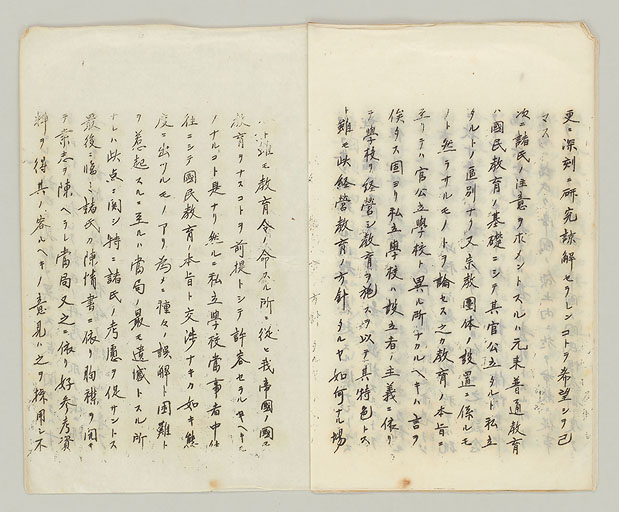 更ニ深刻ニ研究諒解セラレンコトヲ希望シヲ已
マス
次ニ諸氏ノ注意ヲ求メントスルハ元来普通教育
ハ國民教育ノ基礎ニシテ其官公立タルト私立
タルトノ區別ナク又宗教團体ノ設置ニ係ルモ
ノト然ラサルモノトヲ論セス之カ教育ノ本旨ニ
至リテハ官公立學校ト異ル所ナカルヘキハ言ヲ
俟タス固ヨリ私立學校ハ設立者ノ主義ニ依リ
テ學校ヲ経営シ教育ヲ施スヲ以テ其特色トス
ト雖モ此経営教育ノ方針タルヤ如何ナル場
ト雖モ教育令ノ命スル所ニ從ヒ我帝國ノ國民
教育ヲナスコトヲ前提トシテ許容セラルヘキモ
ノナルコト是ナリ然ルニ私立學校當事者中
往ニシテ國民教育ノ本旨ト交渉ナキカ如キ態
度ニ出ツルモノアリ為メニ種々ノ誤解ト困難ト
ヲ惹起スルニ至ルハ當局ノ最モ遺憾トスル所
ナレハ此点ニ関シ特ニ諸氏ノ考慮ヲ促サントス
最後ニ臨ミ諸氏カ陳情書ニ依リ胸襟ヲ開キ
テ素志ヲ陳ヘラレ當局又之ニ依リ好参考資
料ヲ得其ノ容ルヘキノ意見ハ之ヲ採用シ不